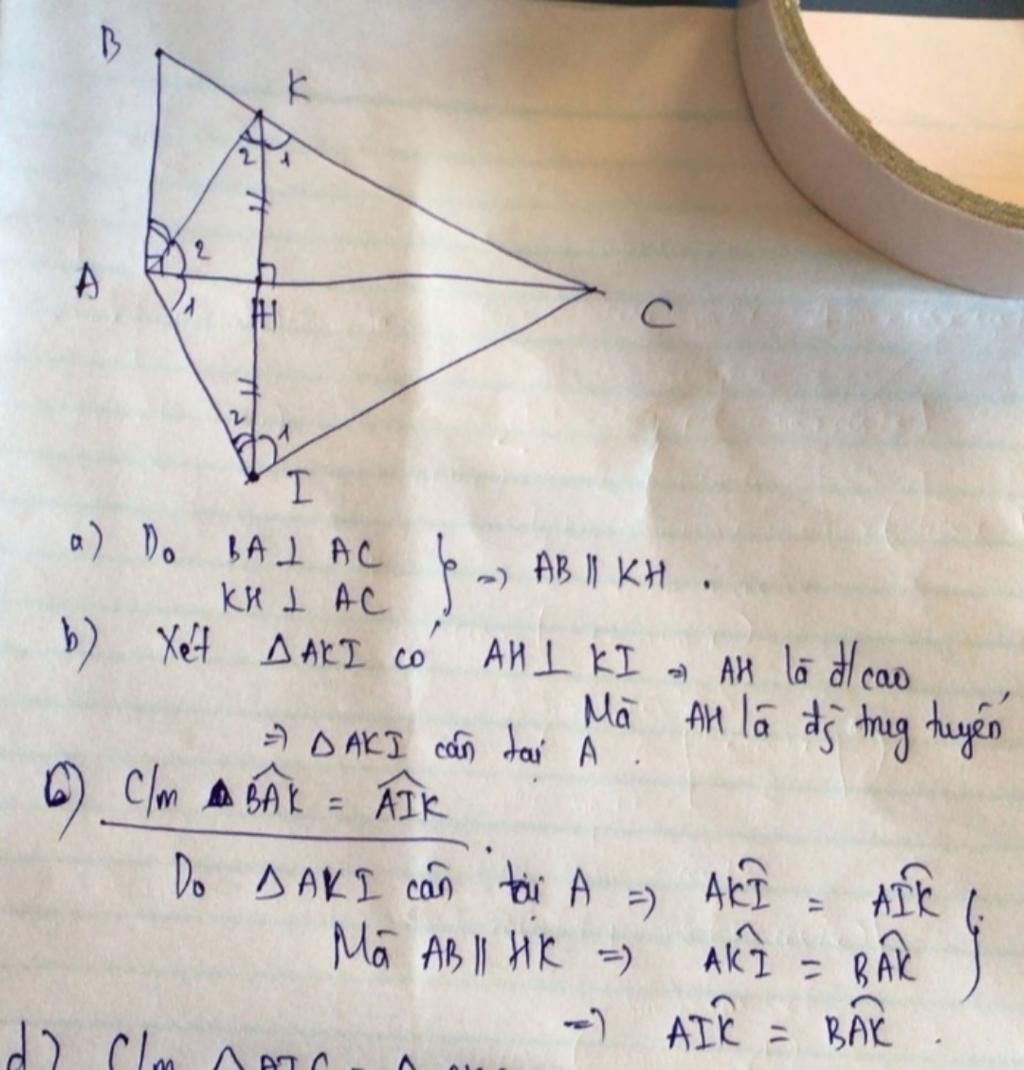 B
K
2 1
2
A
1
H
C
2 1
I
a) Do BA ⊥ AC
KH ⊥ AC } => AB || KH .
b) Xét △AKI có AH ⊥ KI => AH là đ/cao
Mà AH là đg trug tuyến
=> △AKI cân tại A .
c) C/m BAK = AIK
Do △AKI cân tại A => AKI = AIK
Mà AB || HK => AKI = BAK }
=> AIK = BAK .
d) C/m △AIC = △